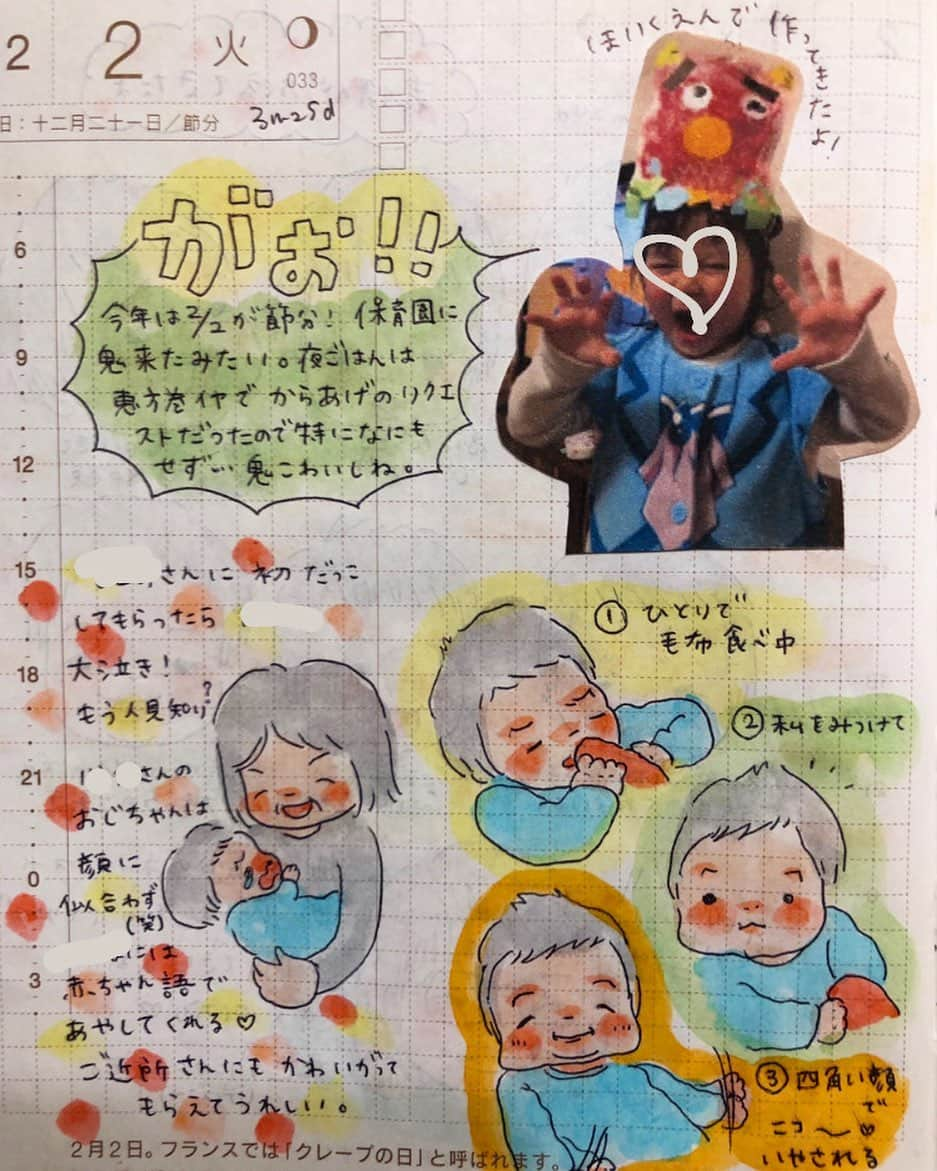 2
2
火
033
日：十二月二十一日／節分
3m25d
ほいくえんで作ってきたよ！
がぉ!!
今年は2/2が節分！保育園に
鬼来たみたい。夜ごはんは
恵方巻イヤでからあげのリクエ
ストだったので特になにも
せず… 鬼こわいしね。
6
9
12
15
18
21
0
3
さんに初だっこ
してもらったら
大泣き！
もう人見知り?
さんの
おじちゃんは
顔に
似合わず
(笑)
には
赤ちゃん語で
あやしてくれる♡
ご近所さんにもかわいがって
もらえてうれしい。
① ひとりで
毛布食べ中
② 私をみつけて
③ 四角い顔
で
ニコ〜♡
いやされる
2月2日。フランスでは「クレープの日」と呼ばれます。